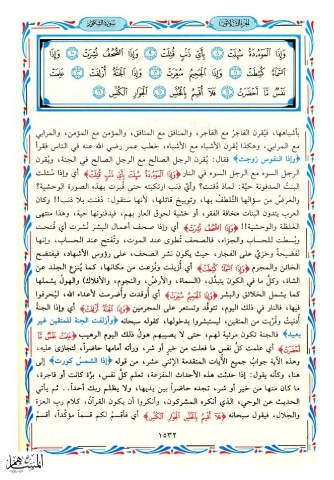 الجزء الثلاثون سورة التكوير
وَإِذَا الْمَوْءُودَةُ سُئِلَتْ ٨ بِأَيِّ ذَنْبٍ قُتِلَتْ ٩ وَإِذَا الصُّحُفُ نُشِرَتْ ١٠ وَإِذَا
السَّمَاءُ كُشِطَتْ ١١ وَإِذَا الْجَحِيمُ سُعِّرَتْ ١٢ وَإِذَا الْجَنَّةُ أُزْلِفَتْ ١٣ عَلِمَتْ
نَفْسٌ مَا أَحْضَرَتْ ١٤ فَلَا أُقْسِمُ بِالْخُنَّسِ ١٥ الْجَوَارِ الْكُنَّسِ ١٦
بأشباهها، فيُقرن الفاجرُ مع الفاجر، والمنافق مع المنافق، والمؤمن مع المؤمن، والمرابي
مع المرابي، وهكذا يُقرن الأشباه مع الأشباه، خطب عمر رضي الله عنه في الناس فقرأ
﴿وإذا النفوس زوجت﴾ فقال: يُقرن الرجل الصالح مع الرجل الصالح في الجنة، ويُقرن
الرجل السوء مع الرجل السوء في النار ﴿وَإِذَا الْمَوْءُودَةُ سُئِلَتْ بِأَيِّ ذَنْبٍ قُتِلَتْ﴾ أي وإذا سُئلت
البنتُ المدفونة حيَّة: لماذا دُفنت؟ وأيَّ ذنب ارتكبته حتى قُبرت بهذه الصورة الوحشية؟
والغرضُ من سؤالها التلطُّف بها، وتوبيخ قاتلها، لأنها ستقول: دُفنت بلا ذنب!! وكان
العرب يئدون البنات مخافة الفقر، أو خشية لحوق العار بهم، فيدفنونها حية، وهذا منتهى
الغلظة والوحشية!! ﴿وَإِذَا الصُّحُفُ نُشِرَتْ﴾ أي وإذا صحف أعمال البشر نُشرت أي فُتحت
وبُسطت للحساب والجزاء، فالصحف تُطوى عند الموت، وتُفتح عند الحساب، وإنها
لفضيحةٌ وخزيٌ على الفجار، حيث يكون نشر الصحف، على رؤوس الأشهاد، فيفتضح
الخائن والمجرم ﴿وَإِذَا السَّمَاءُ كُشِطَتْ﴾ أي أُزيلت ونُزعت من مكانها، كما يُنزع الجلد عن
الشاة، وكلُّ ما في الكون يتبدَّل، (السماء، والأرض، والنجوم، والأفلاك) والهولُ يشملها
كما يشمل الخلائق والبشر ﴿وَإِذَا الْجَحِيمُ سُعِّرَتْ﴾ أي أُوقدت وأُضرمت لأعداء الله، ليُحرقوا
فيها، فالنار في ذلك اليوم، تتوقَّد وتستعر على المجرمين ﴿وَإِذَا الْجَنَّةُ أُزْلِفَتْ﴾ أي وإذا الجنةُ
أُدنيت وقُرِّبت من المتقين، ليستبشروا بدخولها، كقوله سبحانه ﴿وأزلفت الجنة للمتقين غير
بعيد﴾ فالجنة تكون مرئية لهم، حتى لا يصيبهم هولُ ذلك اليوم الرهيب ﴿عَلِمَتْ نَفْسٌ مَا
أَحْضَرَتْ﴾ أي علمت كلُّ نفسٍ ما فعلت من خير أو شر، ورأته أمامها حاضراً، لتجازى عليه،
وهذه الآية جوابُ جميع الآيات المتقدمة الإثني عشر، من قوله ﴿إذا الشمس كورت﴾ إلى
هنا، وكأنه يقول: إذا حدثت هذه الأحداث المفزعة، تعلم كلُّ نفس، برَّة كانت أو فاجرة،
ما كان منها من خير أو شر، تجده حاضراً بين يديها، ولا يظلم ربك أحداً.. ثم يأتي
الحديث عن الوحي، الذي أنكره المشركون، وأنكروا أن يكون القرآن، كلام رب العزة
والجلال، فيقول سبحانه ﴿فَلَا أُقْسِمُ بِالْخُنَّسِ﴾ أي فأقسمُ لكم قسماً مؤكداً، أقسم
١٥٣٢